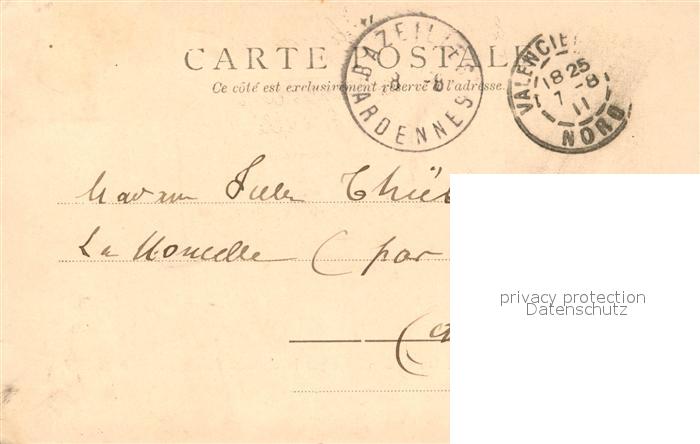 CARTE POSTALE
Ce côté est exclusivement réservé à l'adresse.
BAZEILLES
8 - 8
ARDENNES
VALENCIEN
18 25
7 - 8
11
NORD
Madame
La Moncelle (par
privacy protection
Datenschutz